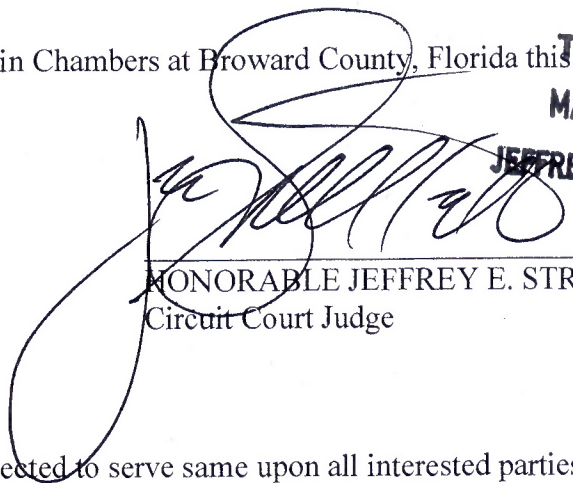 in Chambers at Broward County, Florida this
HONORABLE JEFFREY E. STR
Circuit Court Judge
ected to serve same upon all interested parties